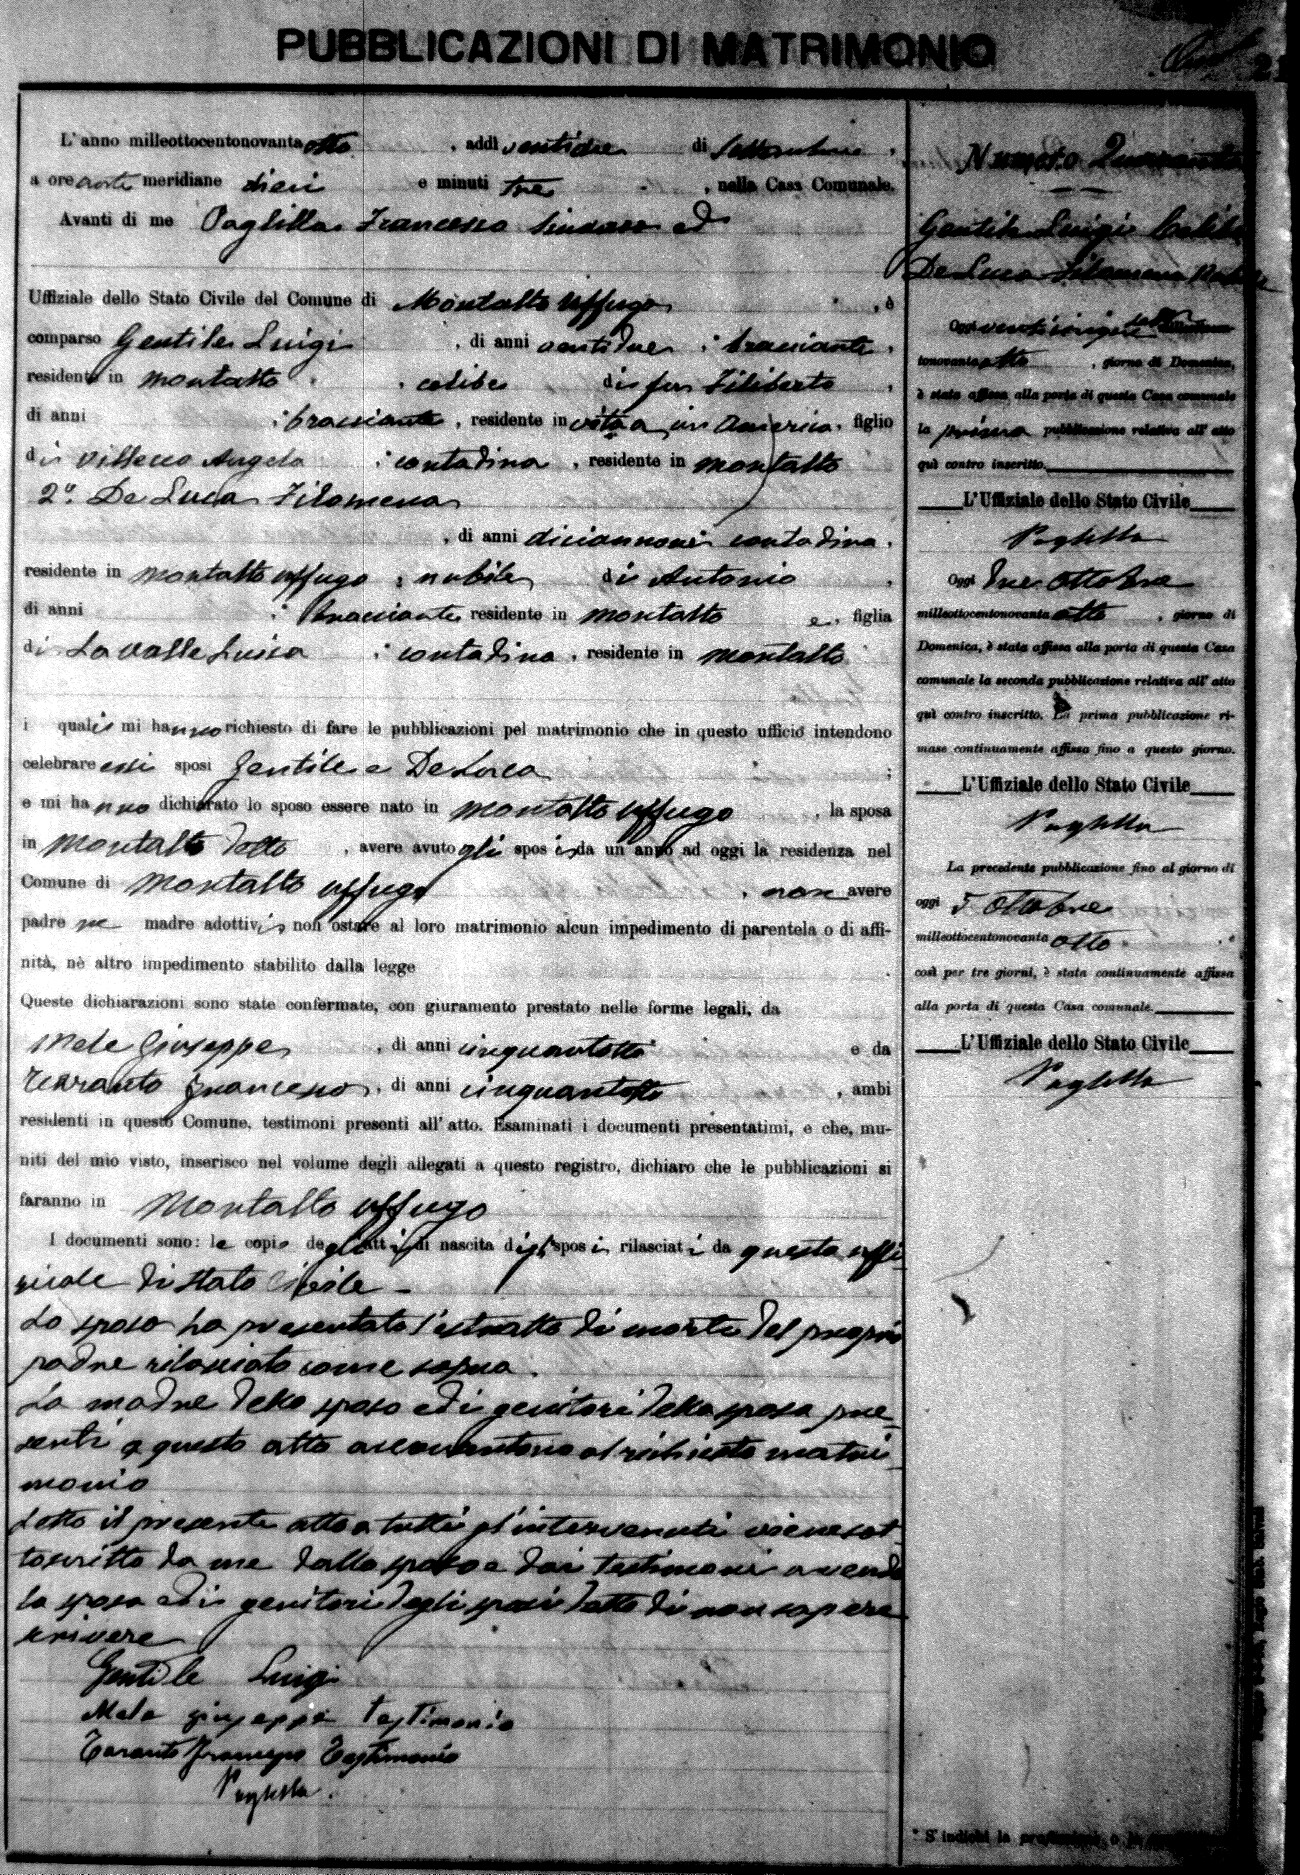 PUBBLICAZIONI DI MATRIMONIO
L'anno milleottocentonovanta otto, addì ventidue di Settembre,
a ore anti meridiane dieci e minuti tre, nella Casa Comunale.
Avanti di me Paglilla Francesco Sindaco ed
Uffiziale dello Stato Civile del Comune di Montalto Uffugo, è
comparso Gentile Luigi, di anni ventidue, bracciante,
residente in Montalto, celibe di fu Filiberto,
di anni ; bracciante, residente in vita in America, figlio
di Villecco Angela ; contadina, residente in Montalto
2º De Luca Filomena
, di anni diciannove contadina,
residente in Montalto Uffugo, nubile, di Antonio,
di anni ; bracciante residente in Montalto e, figlia
di La Valle Luisa ; contadina, residente in Montalto
i quali mi hanno richiesto di fare le pubblicazioni pel matrimonio che in questo ufficio intendono
celebrare essi sposi Gentile e De Luca ;
e mi hanno dichiarato lo sposo essere nato in Montalto Uffugo, la sposa
in Montalto detto, avere avuto gli sposi da un anno ad oggi la residenza nel
Comune di Montalto Uffugo, non avere
padre ne madre adottivi, non ostare al loro matrimonio alcun impedimento di parentela o di affi-
nità, nè altro impedimento stabilito dalla legge
Queste dichiarazioni sono state confermate, con giuramento prestato nelle forme legali, da
Mele Giuseppe, di anni cinquantotto e da
Taranto Francesco, di anni cinquantotto, ambi
residenti in questo Comune, testimoni presenti all'atto. Esaminati i documenti presentatimi, e che, mu-
niti del mio visto, inserisco nel volume degli allegati a questo registro, dichiaro che le pubblicazioni si
faranno in Montalto Uffugo
I documenti sono: le copie degli atti di nascita degli sposi rilasciati da questo uffi
ciale di stato Civile -
Lo sposo ha presentato l'estratto di morte del proprio
padre rilasciato come sopra.
La madre dello sposo ed i genitori della sposa pre
senti a questo atto acconsentono al richiesto matri
monio
Letto il presente atto a tutti gl'intervenuti viene sot
toscritto da me dallo sposo e dai testimoni avendo
la sposa ed i genitori degli sposi detto di non sapere
scrivere
Gentile Luigi
Mele giuseppe testimonio
Taranto Francesco Testimonio
Paglilla
Numero Quaranta
Gentile Luigi Celibe
De Luca Filomena Nubile
Oggi venticinque
tonovanta otto, giorno di Domenica,
è stata affissa alla porta di questa Casa comunale
la prima pubblicazione relativa all'atto
quì contro inscritto.
L'Uffiziale dello Stato Civile
Paglilla
Oggi due Ottobre
milleottocentonovanta otto, giorno di
Domenica, è stata affissa alla porta di questa Casa
comunale la seconda pubblicazione relativa all'atto
quì contro inscritto. La prima pubblicazione ri-
mase continuamente affissa fino a questo giorno.
L'Uffiziale dello Stato Civile
Paglilla
La precedente pubblicazione fino al giorno di
oggi 5 Ottobre
milleottocentonovanta otto, e
così per tre giorni, è stata continuamente affissa
alla porta di questa Casa comunale.
L'Uffiziale dello Stato Civile
Paglilla
* S'indichi la professione o la